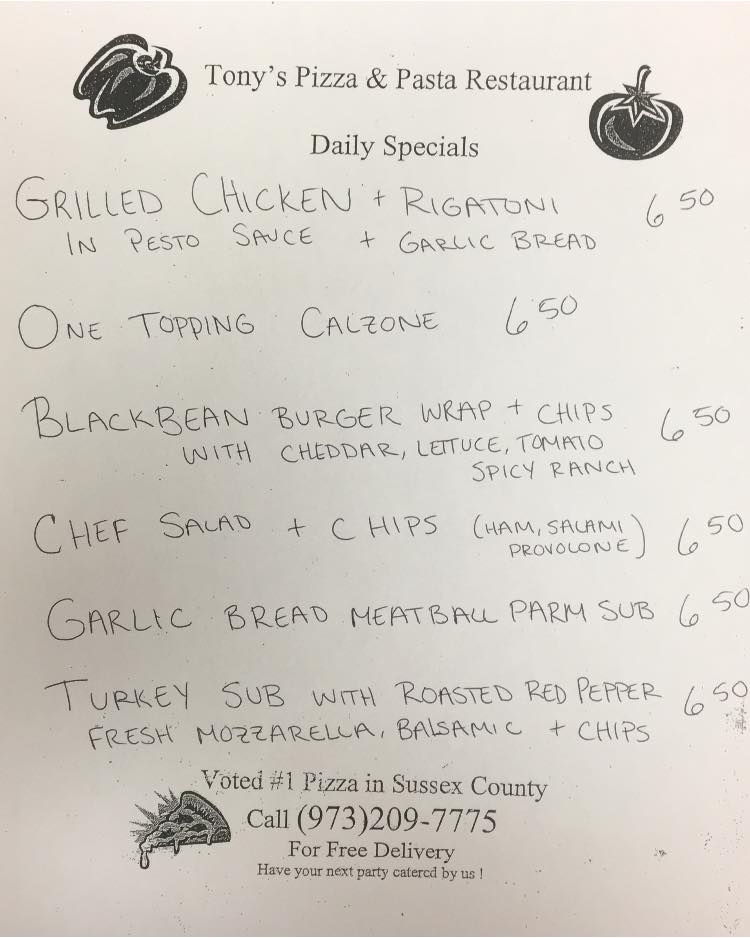 Tony's Pizza & Pasta Restaurant
Daily Specials
GRILLED CHICKEN + RIGATONI 6 50
IN PESTO SAUCE + GARLIC BREAD
ONE TOPPING CALZONE 6 50
BLACKBEAN BURGER WRAP + CHIPS 6 50
WITH CHEDDAR, LETTUCE, TOMATO
SPICY RANCH
CHEF SALAD + CHIPS (HAM, SALAMI 6 50
PROVOLONE)
GARLIC BREAD MEATBALL PARM SUB 6 50
TURKEY SUB WITH ROASTED RED PEPPER 6 50
FRESH MOZZARELLA, BALSAMIC + CHIPS
Voted #1 Pizza in Sussex County
Call (973)209-7775
For Free Delivery
Have your next party catered by us !